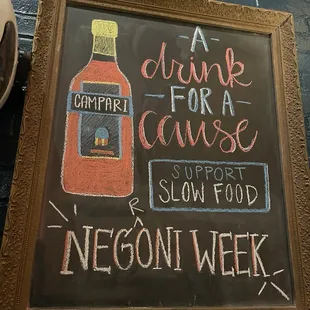 A
drink
FOR A
cause
CAMPARI
SUPPORT
SLOW FOOD
NEGONI WEEK